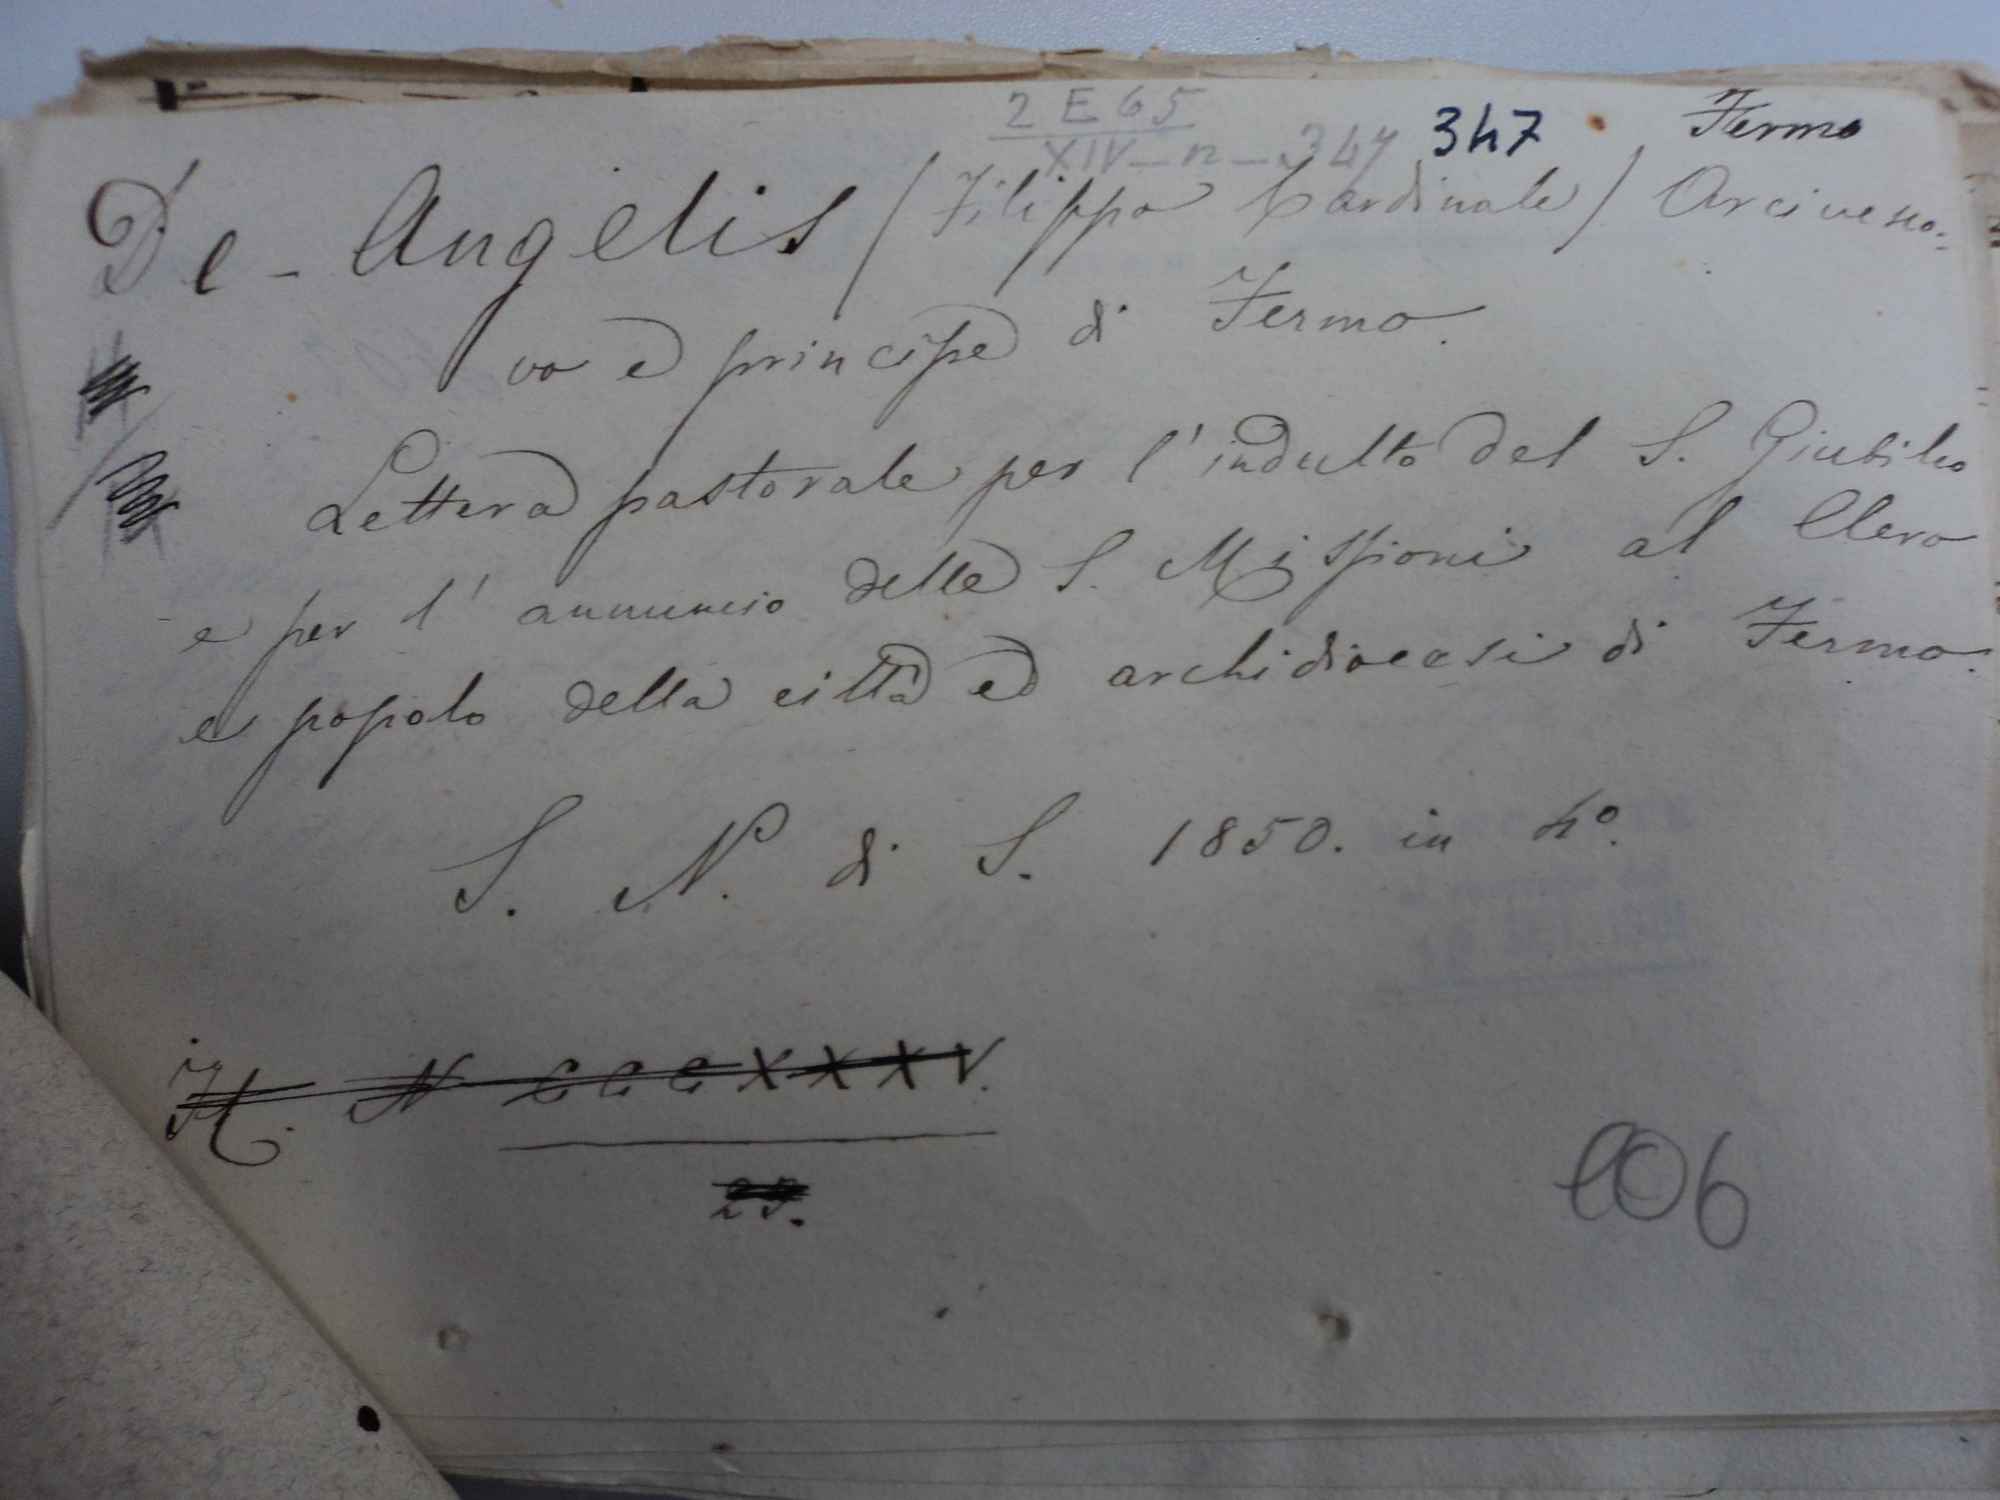 2 E 65
XIV - n - 347 347 Fermo
De-Angelis / Filippo Cardinale / Arcivesco-
vo e principe di Fermo.
Lettera pastorale per l'indulto del S. Giubileo
e per l'annuncio delle S. Missioni al Clero
e popolo della città ed archidiocesi di Fermo.
S. N. di S. 1850. in 4º.
H. N CCCXXXV.
25.
106